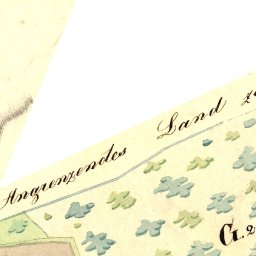 Angrenzendes Land
G. 2